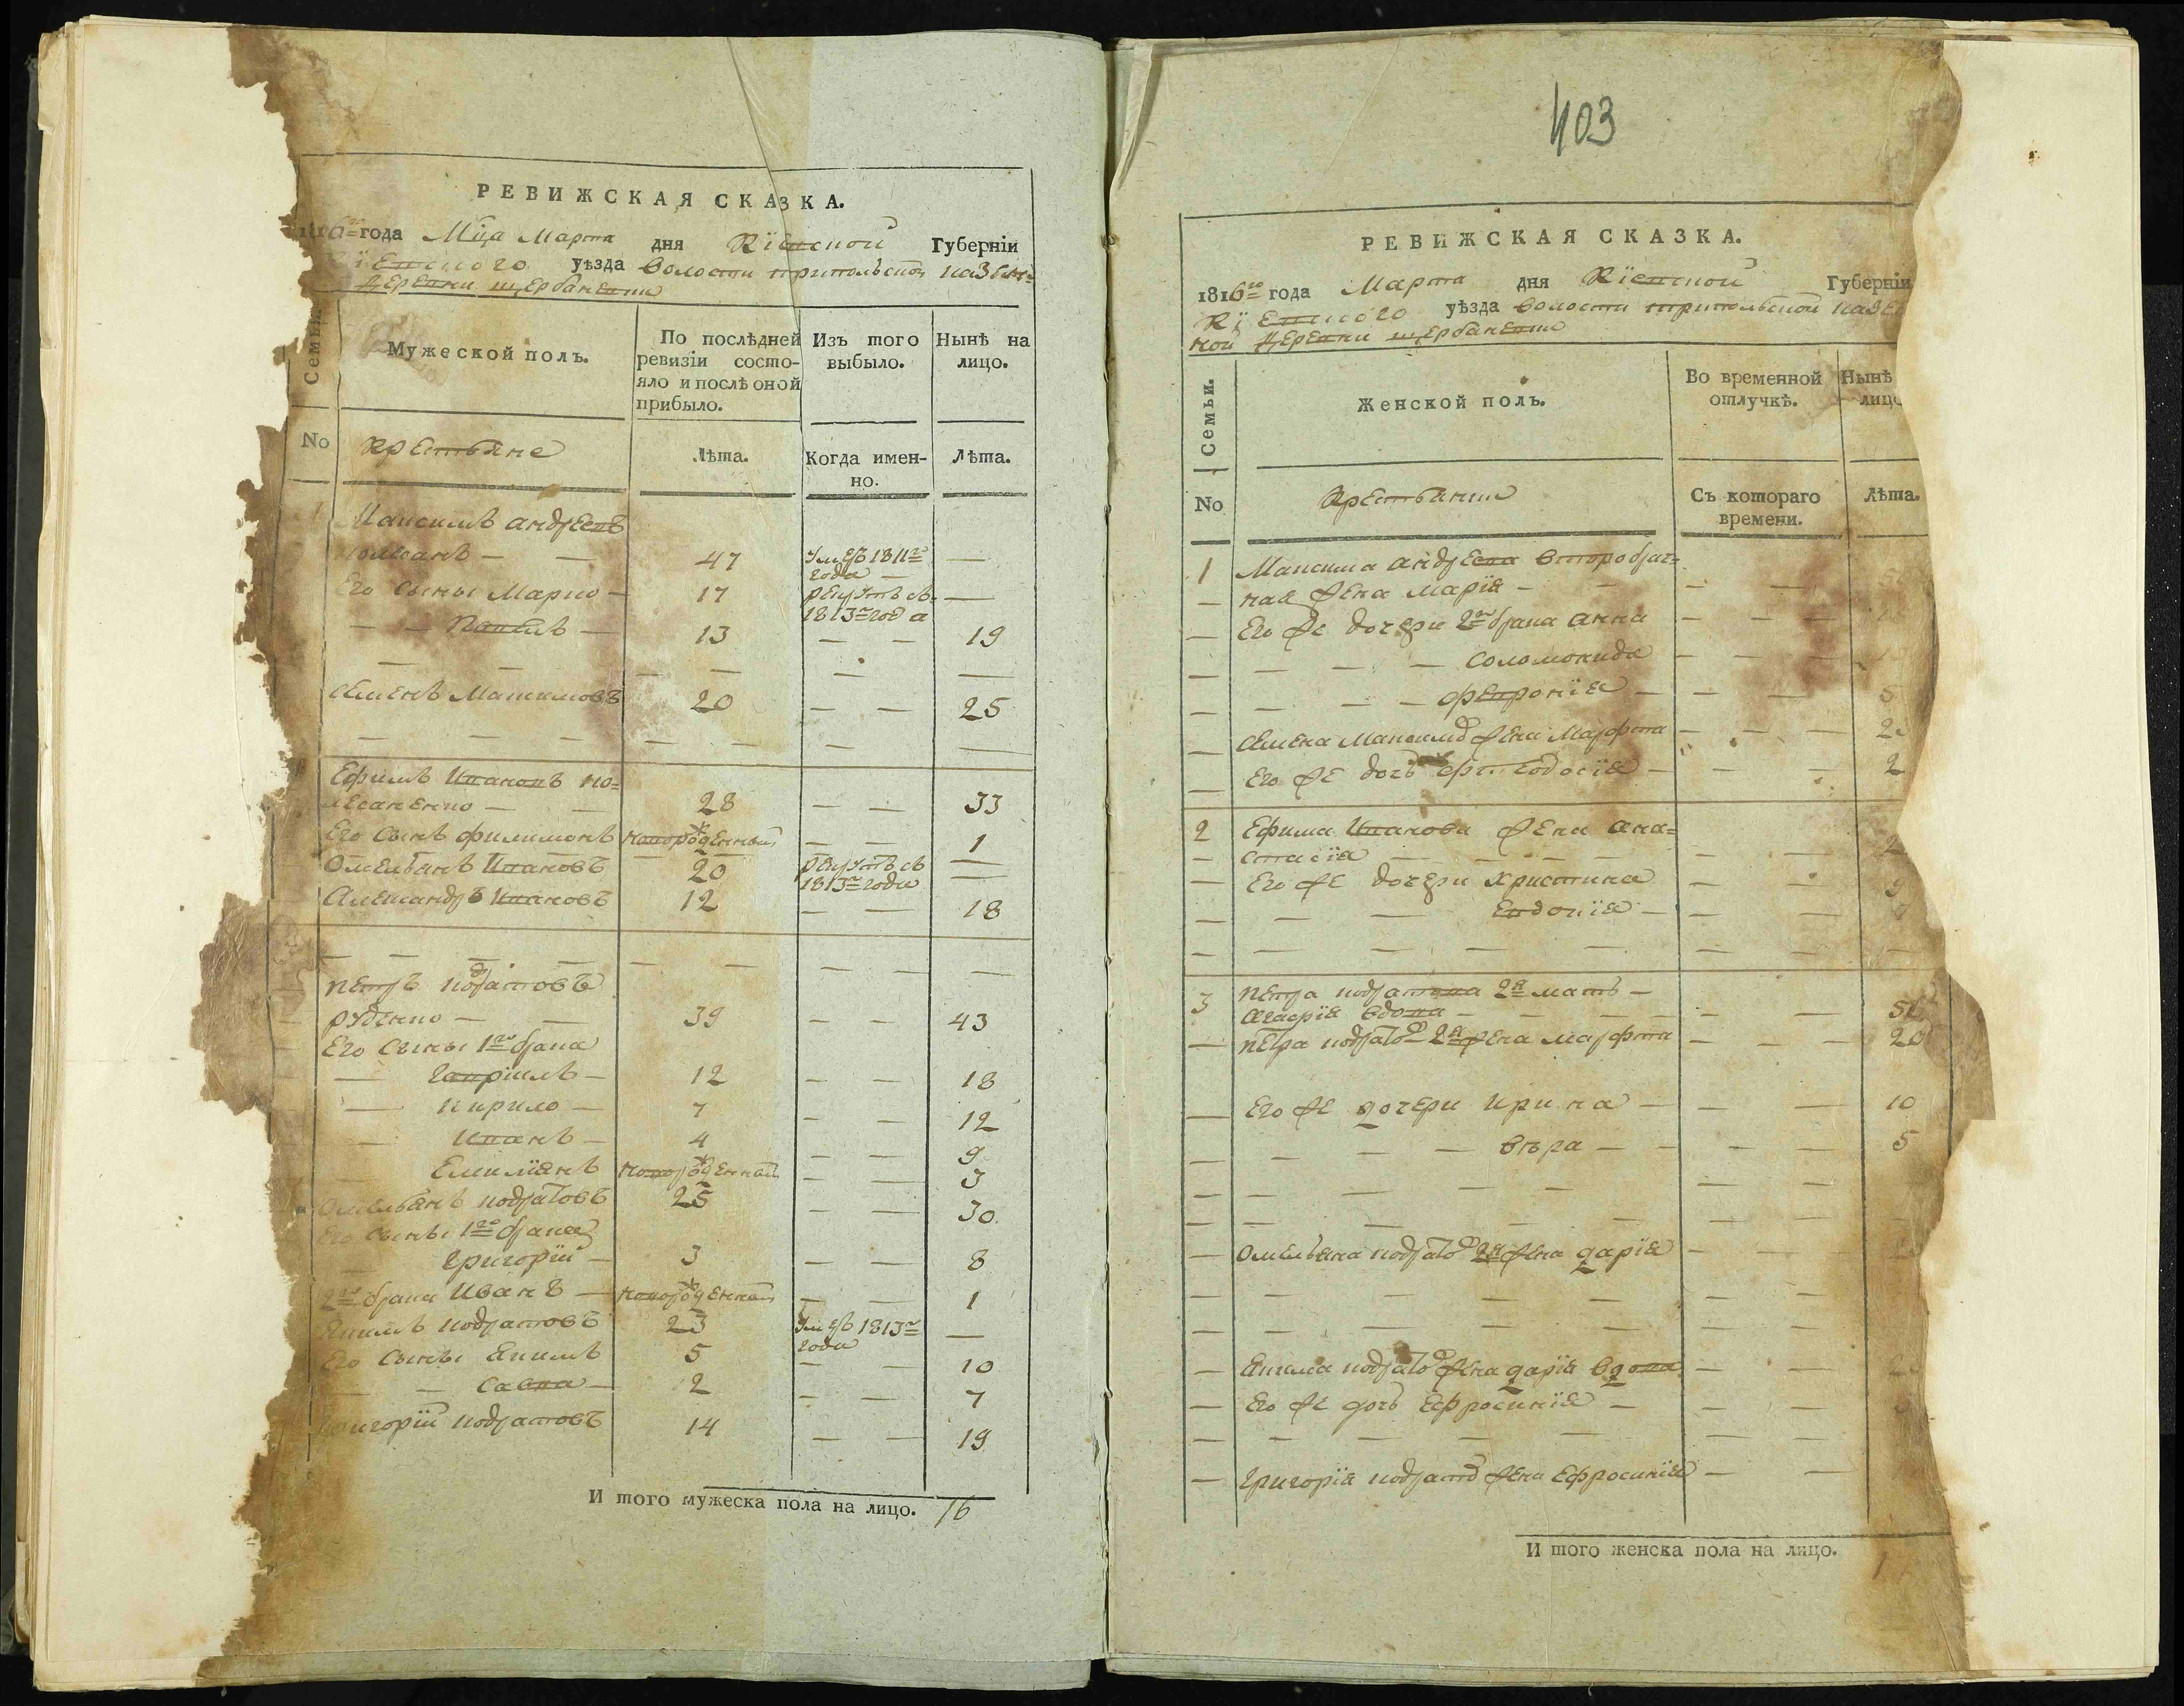 РЕВИЖСКАЯ СКАЗКА.
1816го года Мца Марта дня Кїевской Губернїи
Кїевского уѣзда волости трипольской казен=
деревни щербаневки
Семьи.
Мужеской полъ.
По послѣдней ревизїи состояло и послѣ оной прибыло.
Изъ того выбыло.
Нынѣ на лицо.
No
крестьяне
Лѣта.
Когда именно.
Лѣта.
1 Максимъ андреевъ
47 Умеръ 1811го года —
Его сыны Марко — 17 рекрутъ съ 1813го года —
— — Павелъ — 13 — — 19
Семенъ Максимовъ 20 — — 25
Ефимъ Ивановъ
28 — — 33
Его сынъ филимонъ новорожденный — — 1
Омельянъ Ивановъ 20 рекрутъ съ 1813го года —
Александръ Ивановъ 12 — — 18
петръ кодратовъ
руденко — — 39 — — 43
Его сыны 1го брака
— гавриилъ — 12 — — 18
— кирило — 7 — — 12
— Иванъ — 4 — — 9
Емилїянъ новорожденный — — 3
Омельянъ кодратовъ 25 — — 30
Его сыны 1го брака
григорїй — 3 — — 8
2го брака Иванъ — новорожденный — — 1
Якимъ кодратовъ 23 Умеръ 1813го года —
Его сыны Якимъ 5 — — 10
— — савка — 2 — — 7
григорїй кодратовъ 14 — — 19
И того мужеска пола на лицо. 16
403
РЕВИЖСКАЯ СКАЗКА.
1816го года Марта дня Кїевской Губернїи
Кїевского уѣзда волости трипольской казен
ной деревни щербаневки
Семьи.
Женской полъ.
Во временной отлучкѣ.
Нынѣ лицо
No
крестьянки
Съ котораго времени.
Лѣта.
1 Максима андреева второбрач=
— ная жена марїя — — —
— Его же дочери 2го брака анна — — —
— — — — соломонида — — —
— — — — февронїя — — — 5
— Семена Максимо жена Марфта — — —
— Его же дочь фтеодосїя — — — 2
2 Ефима Иванова жена ана=
— стасїя — — — —
— Его же дочери христина — — 9
— — — Евдокїя — — —
3 петра кодратова 2я мать —
агафїя вдова — — —
— петра кодрато 2я жена марфта — — — 20
— Его же дочери ирина — — — 10
— — — — вѣра — — — 5
— Омельяна кодрато 2я жена дарїя — —
— Якима кодрато жена дарїя вдова — —
— Его же дочь Ефросинїя — — —
— григорїя кодрато жена Ефросинїя — —
И того женска пола на лицо.